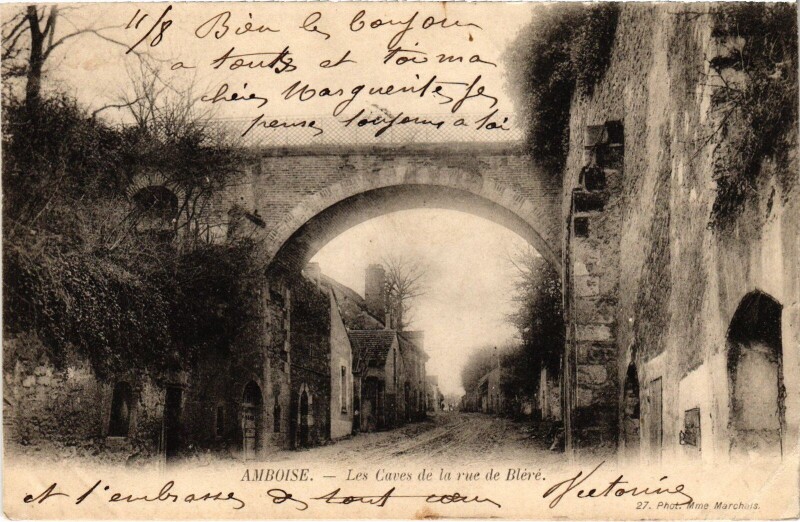 11/8 Bien le Bonjour
a toutes et toi ma
chère Marguerite je
pense toujours a toi
AMBOISE. — Les Caves de la rue de Bléré.
et t'embrasse de tout cœur Victorine
27. Phot. Mme Marchais.